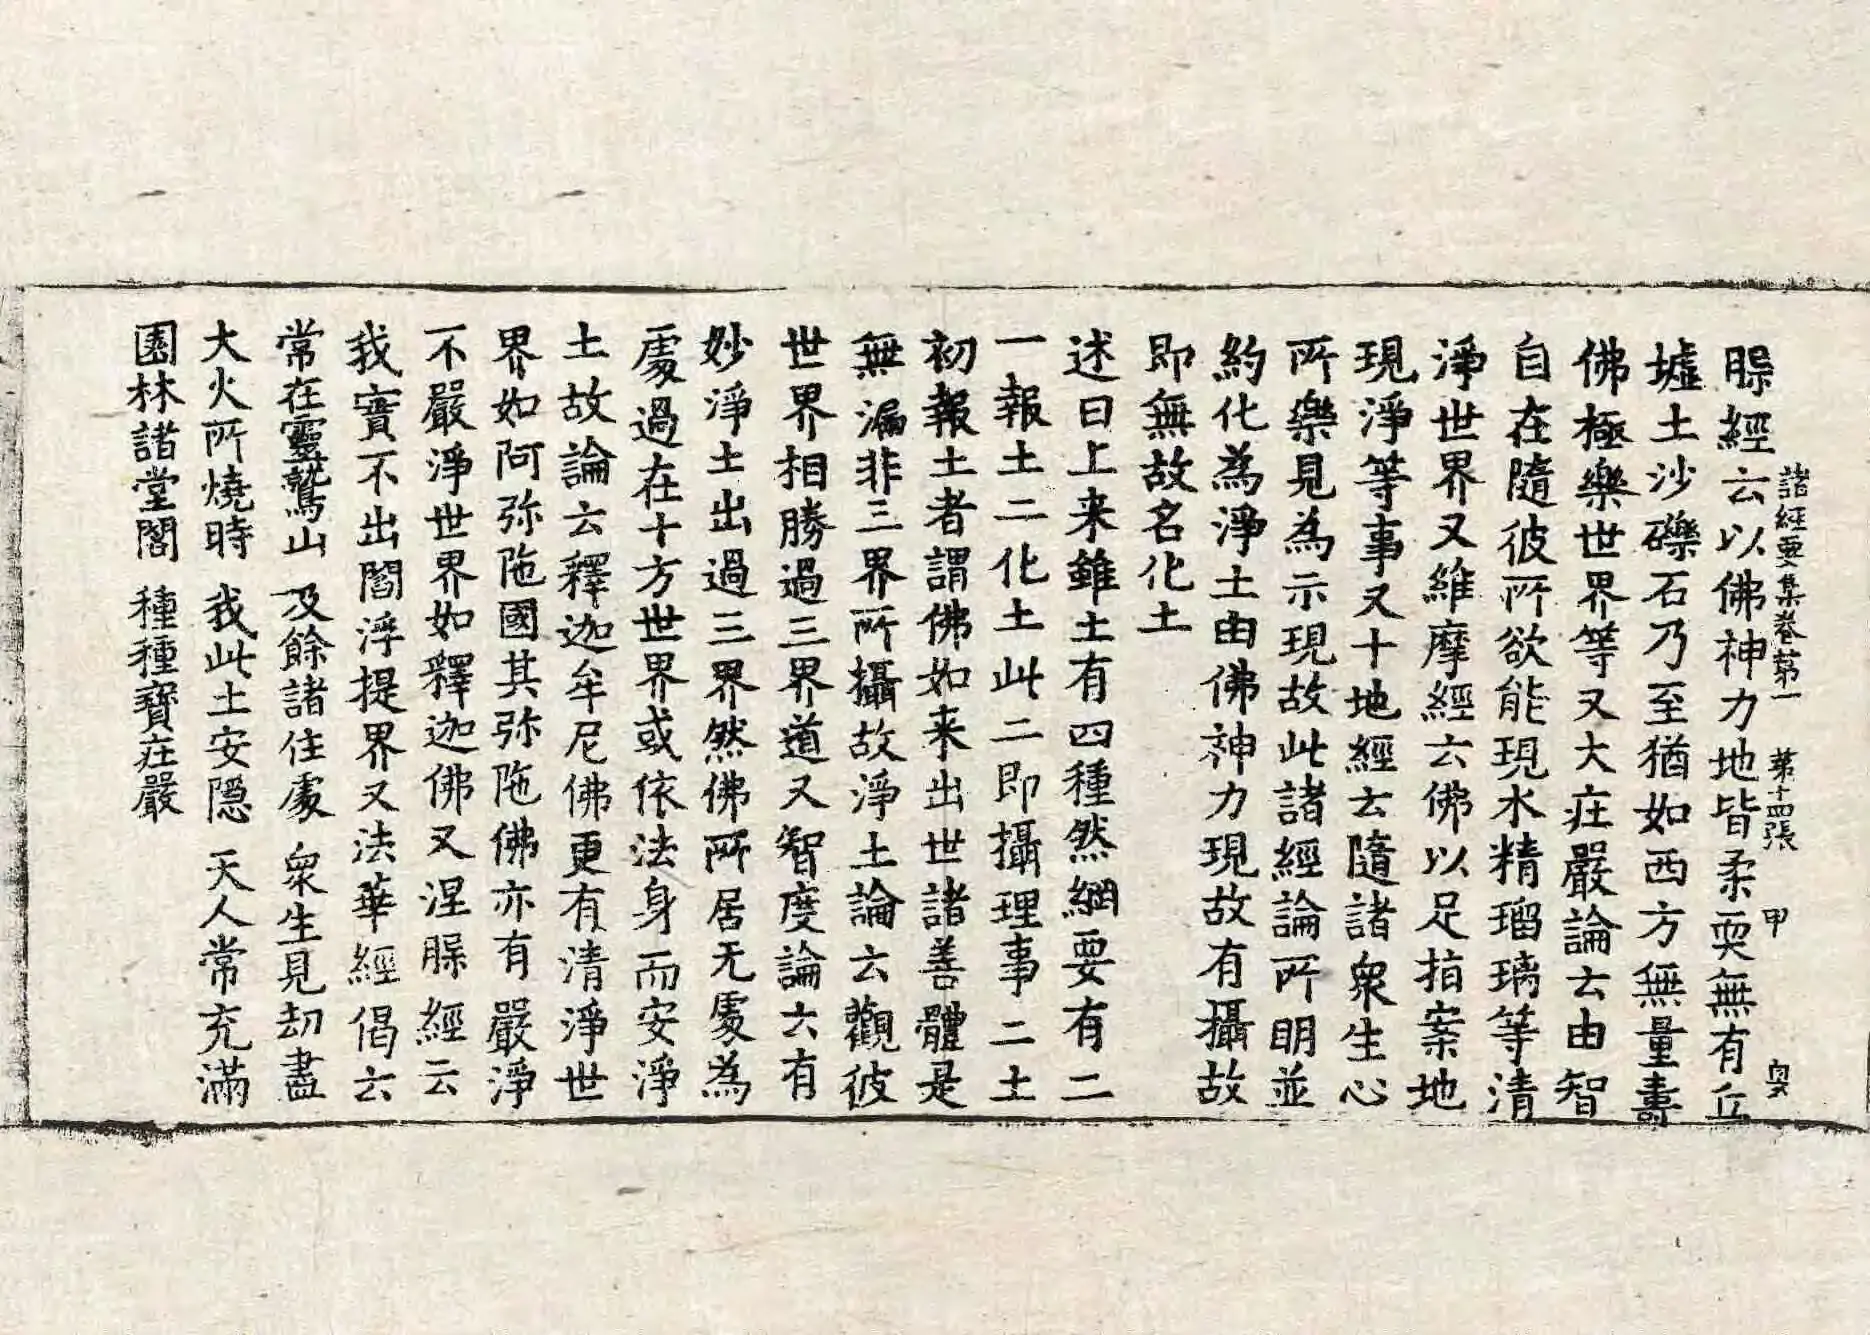 諸經要集卷第一 第十四張 甲
𦙶經云以佛神力地皆柔耎無有丘
墟土沙礫石乃至猶如西方無量壽
佛極樂世界等又大庄嚴論云由智
自在隨彼所欲能現水精瑠璃等清
淨世界又維摩經云佛以足指案地
現淨等事又十地經云隨諸衆生心
所樂見為示現故此諸經論所明並
約化為淨土由佛神力現故有攝故
即無故名化土
述曰上来雖土有四種然綱要有二
一報土二化土此二即攝理事二土
初報土者謂佛如来出世諸善體是
無漏非三界所攝故淨土論云觀彼
世界相勝過三界道又智度論云有
妙淨土出過三界然佛所居无處為
處過在十方世界或依法身而安淨
土故論云釋迦牟尼佛更有清淨世
界如阿弥陁國其弥陁佛亦有嚴淨
不嚴淨世界如釋迦佛又涅𦙶經云
我實不出閻浮提界又法華經偈云
常在靈鷲山 及餘諸住處 衆生見劫盡
大火所燒時 我此土安隠 天人常充滿
園林諸堂閣 種種寶庄嚴